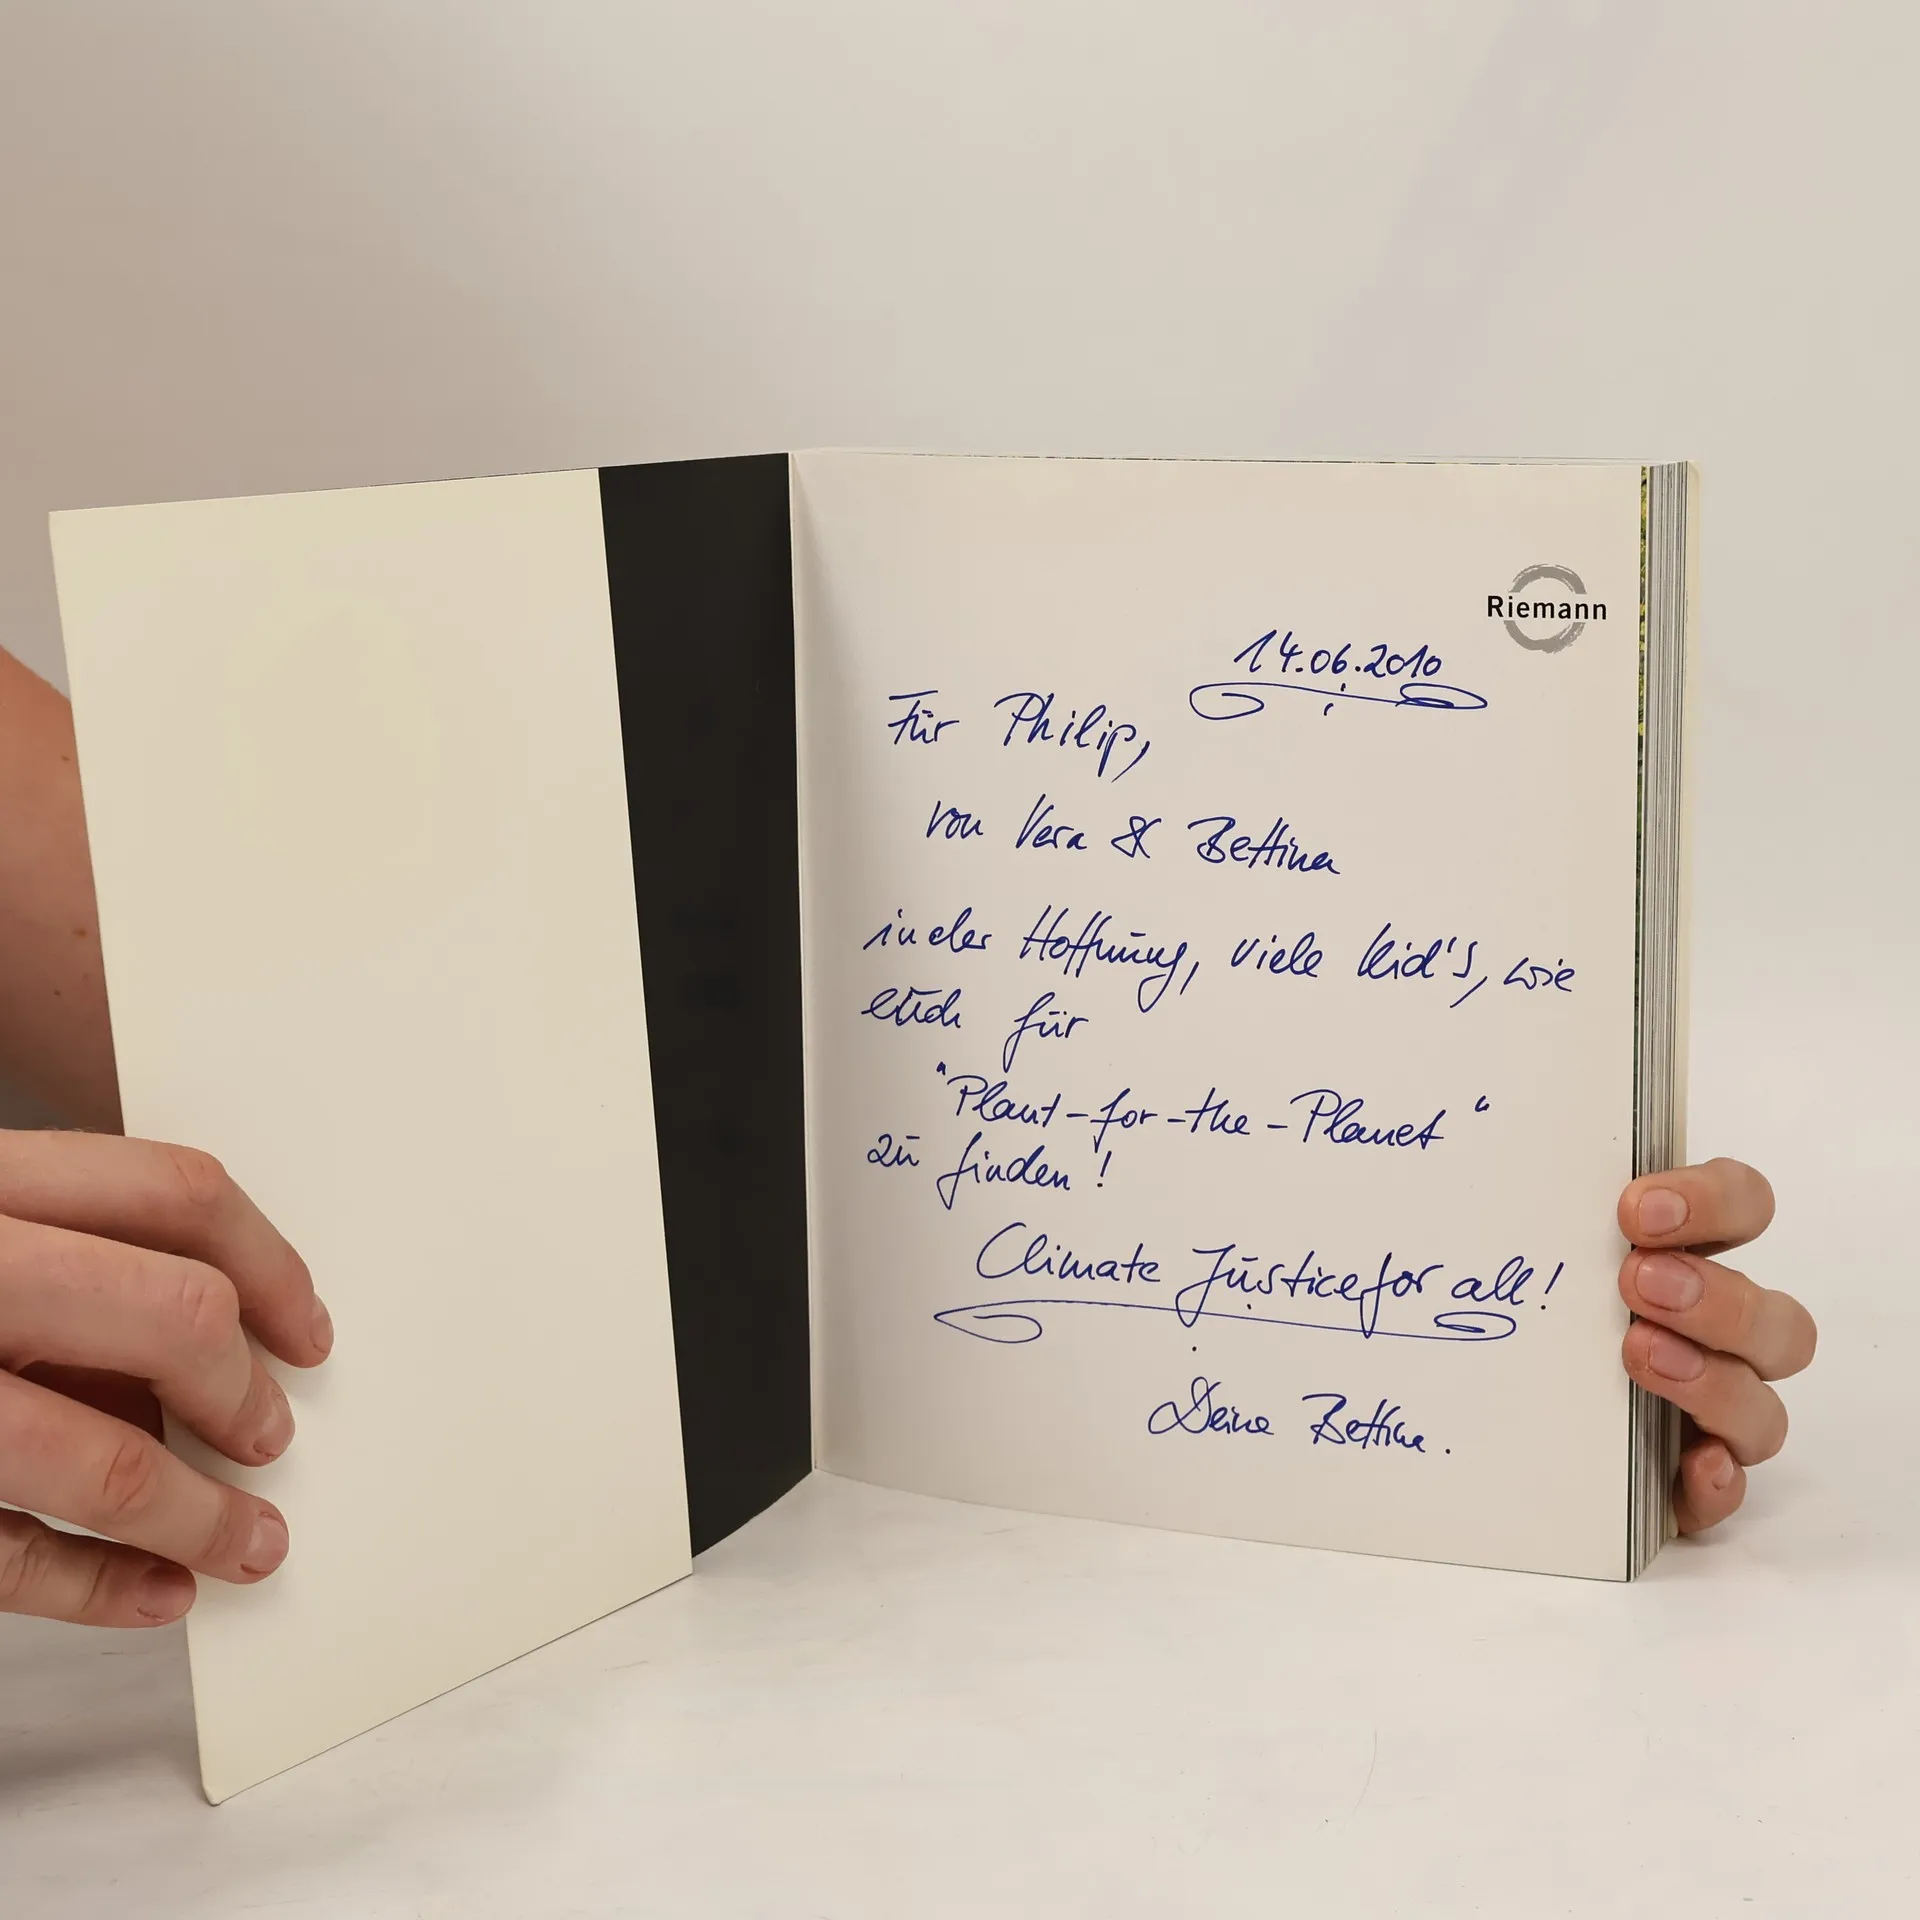 Riemann
14.06.2010
Für Philip,
von Vera & Bettina
in der Hoffnung, viele Kid's, wie
euch für
"Plant-for-the-Planet"
zu finden!
Climate Justice for all!
Deine Bettina.